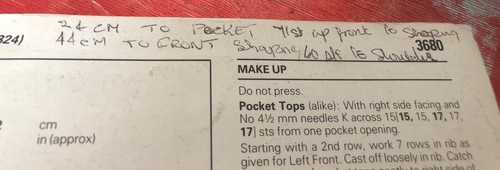 24 CM TO POCKET 71st up front to Shaping
44 CM TO FRONT Shaping to Shoulder
324)
3680
cm
in (approx)
MAKE UP
Do not press.
Pocket Tops (alike): With right side facing and
No 4½ mm needles K across 15[15, 15, 17, 17,
17] sts from one pocket opening.
Starting with a 2nd row, work 7 rows in rib as
given for Left Front. Cast off loosely in rib. Catch